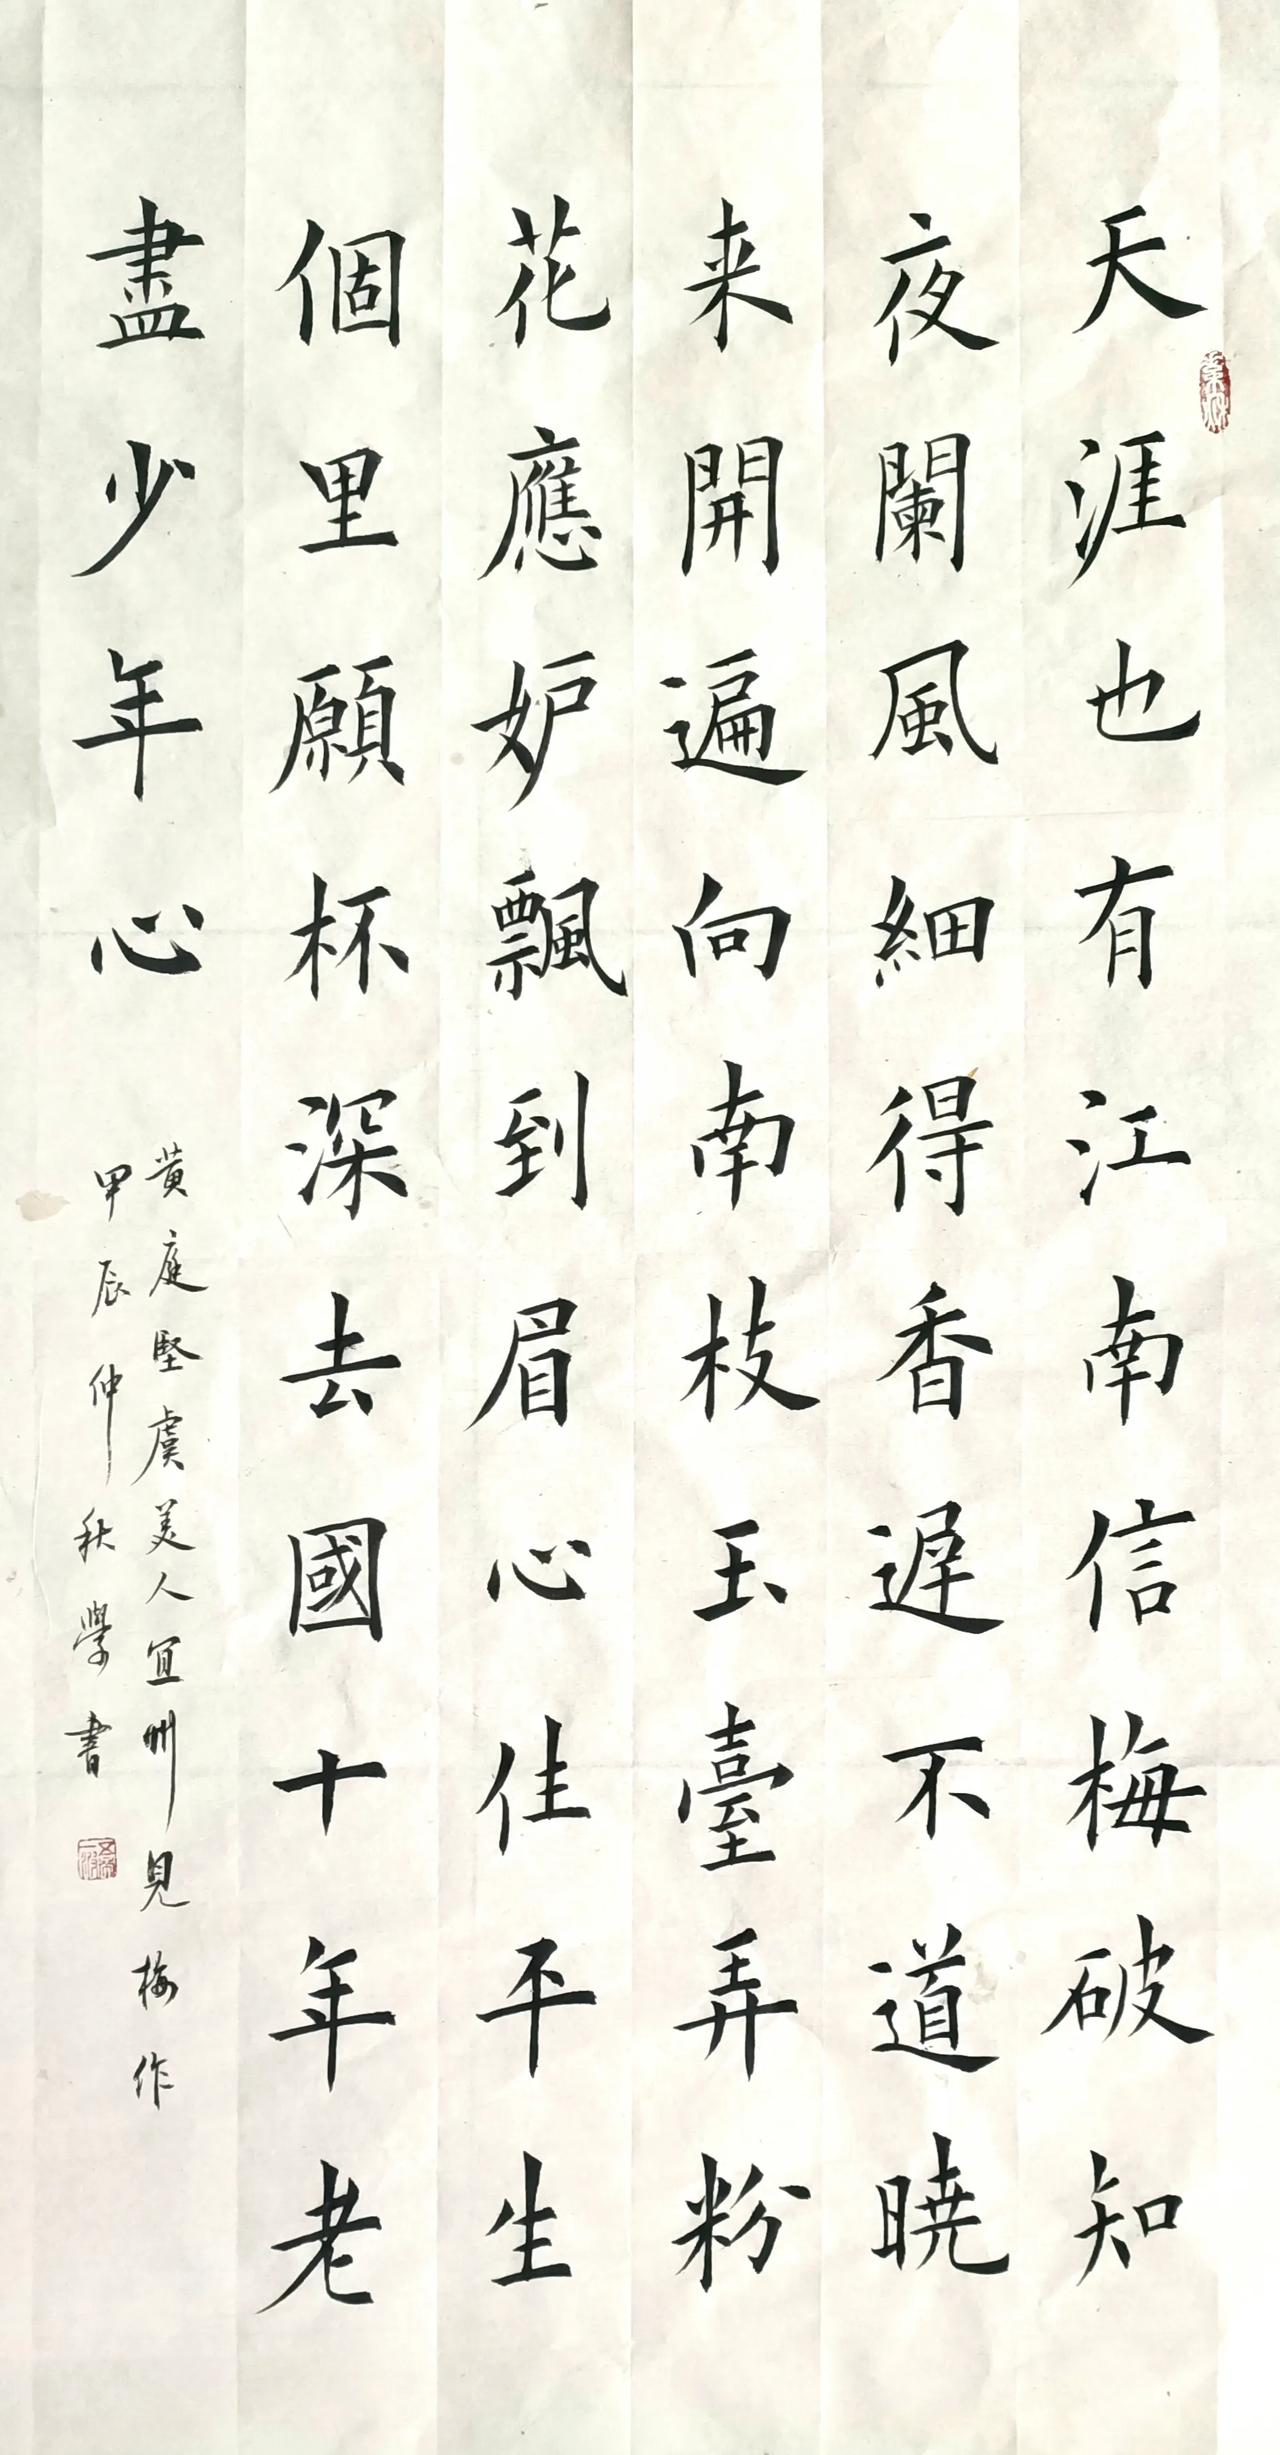 天涯也有江南信梅破知
夜闌風細得香遲不道曉
来開遍向南枝玉臺弄粉
花應妒飄到眉心住平生
個里願杯深去國十年老
盡少年心
黄庭堅虞美人宜州見梅作
甲辰仲秋學書